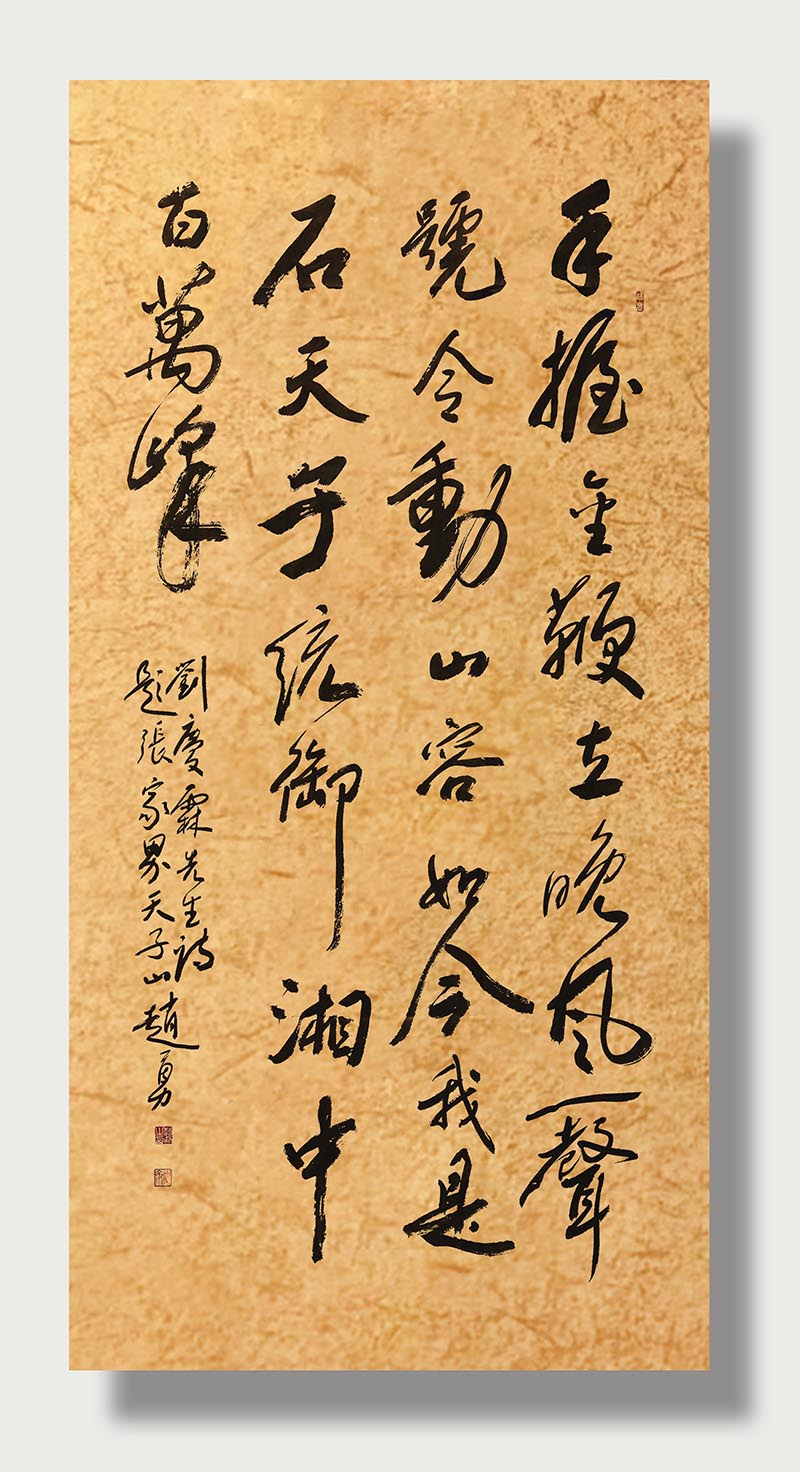 手握金鞭立晚风一聲
號令動山容如今我是
石天子统御湘中
百萬峰
劉慶霖先生詩
題張家界天子山趙勇